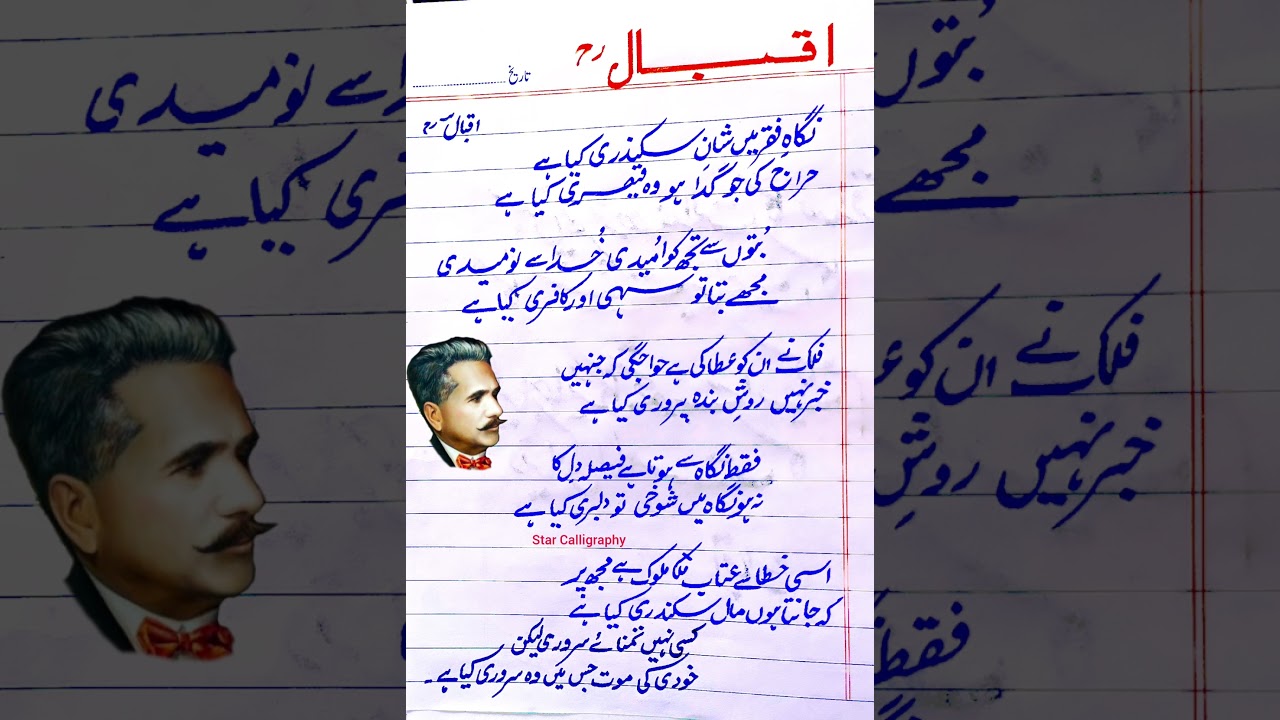 اقبال رح
تاریخ
اقبال رح
نگاہِ فقر میں شانِ سکندری کیا ہے
خراج کی جو گدا ہو وہ قیصری کیا ہے
بُتوں سے تجھ کو اُمیدی خُدا سے نومیدی
مجھے بتا تو سہی اور کافری کیا ہے
فلک نے ان کو عطا کی ہے خواجگی کہ جنہیں
خبر نہیں روشِ بندہ پروری کیا ہے
فقط نگاہ سے ہوتا ہے فیصلہ دِل کا
نہ ہو نگاہ میں شوخی تو دلبری کیا ہے
Star Calligraphy
اسی خطا سے عتاب ملوک ہے مجھ پر
کہ جانتا ہوں مال سکندری کیا ہے
کسی نہیں تمنائے سروری لیکن
خودی کی موت جس میں وہ سروری کیا ہے۔